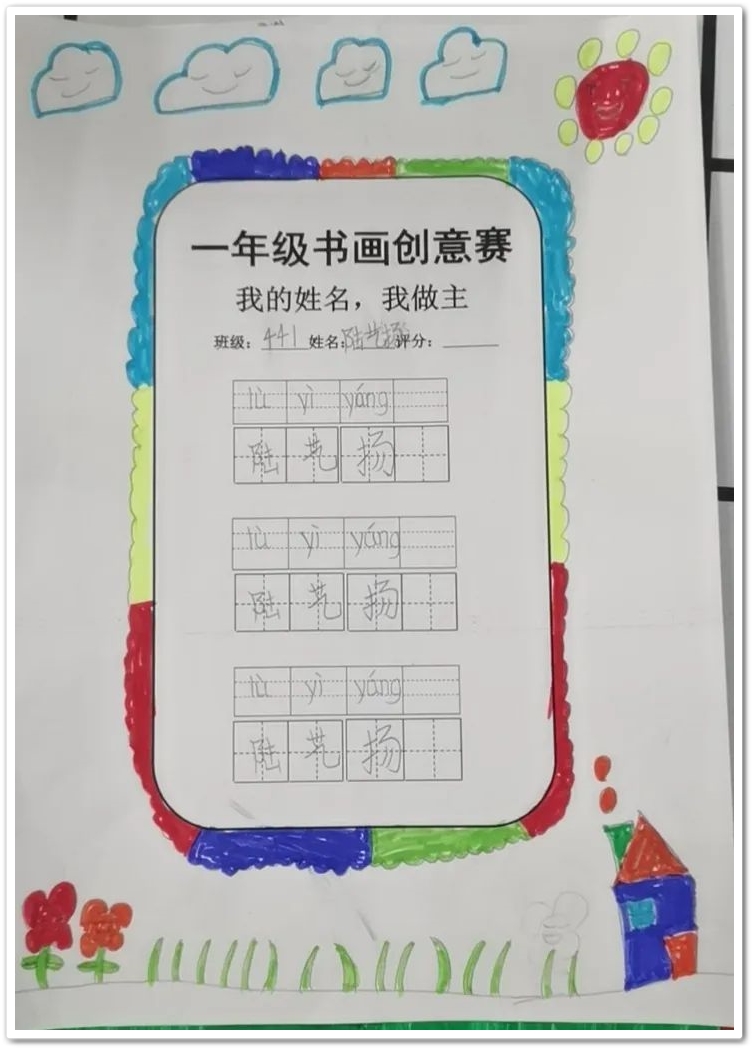 一年级书画创意赛
我的姓名，我做主
班级：441 姓名：陆艺扬 评分：
lù yì yáng
陆艺扬
lù yì yáng
陆艺扬
lù yì yáng
陆艺扬